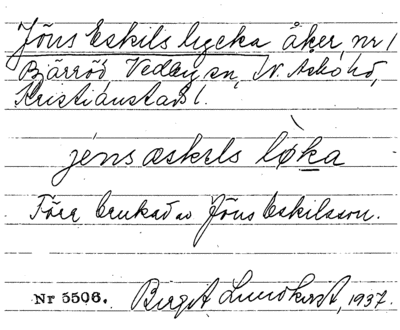 Jöns Eskils lycka åker, nr 1
Bjärröd Vedby sn, N. Åsbo hd,
Kristianstads l.
jéns æskɩls lø̀ka
Förr brukad av Jöns Eskilsson.
Nr 5506. Birgit Lundkvist, 1937.